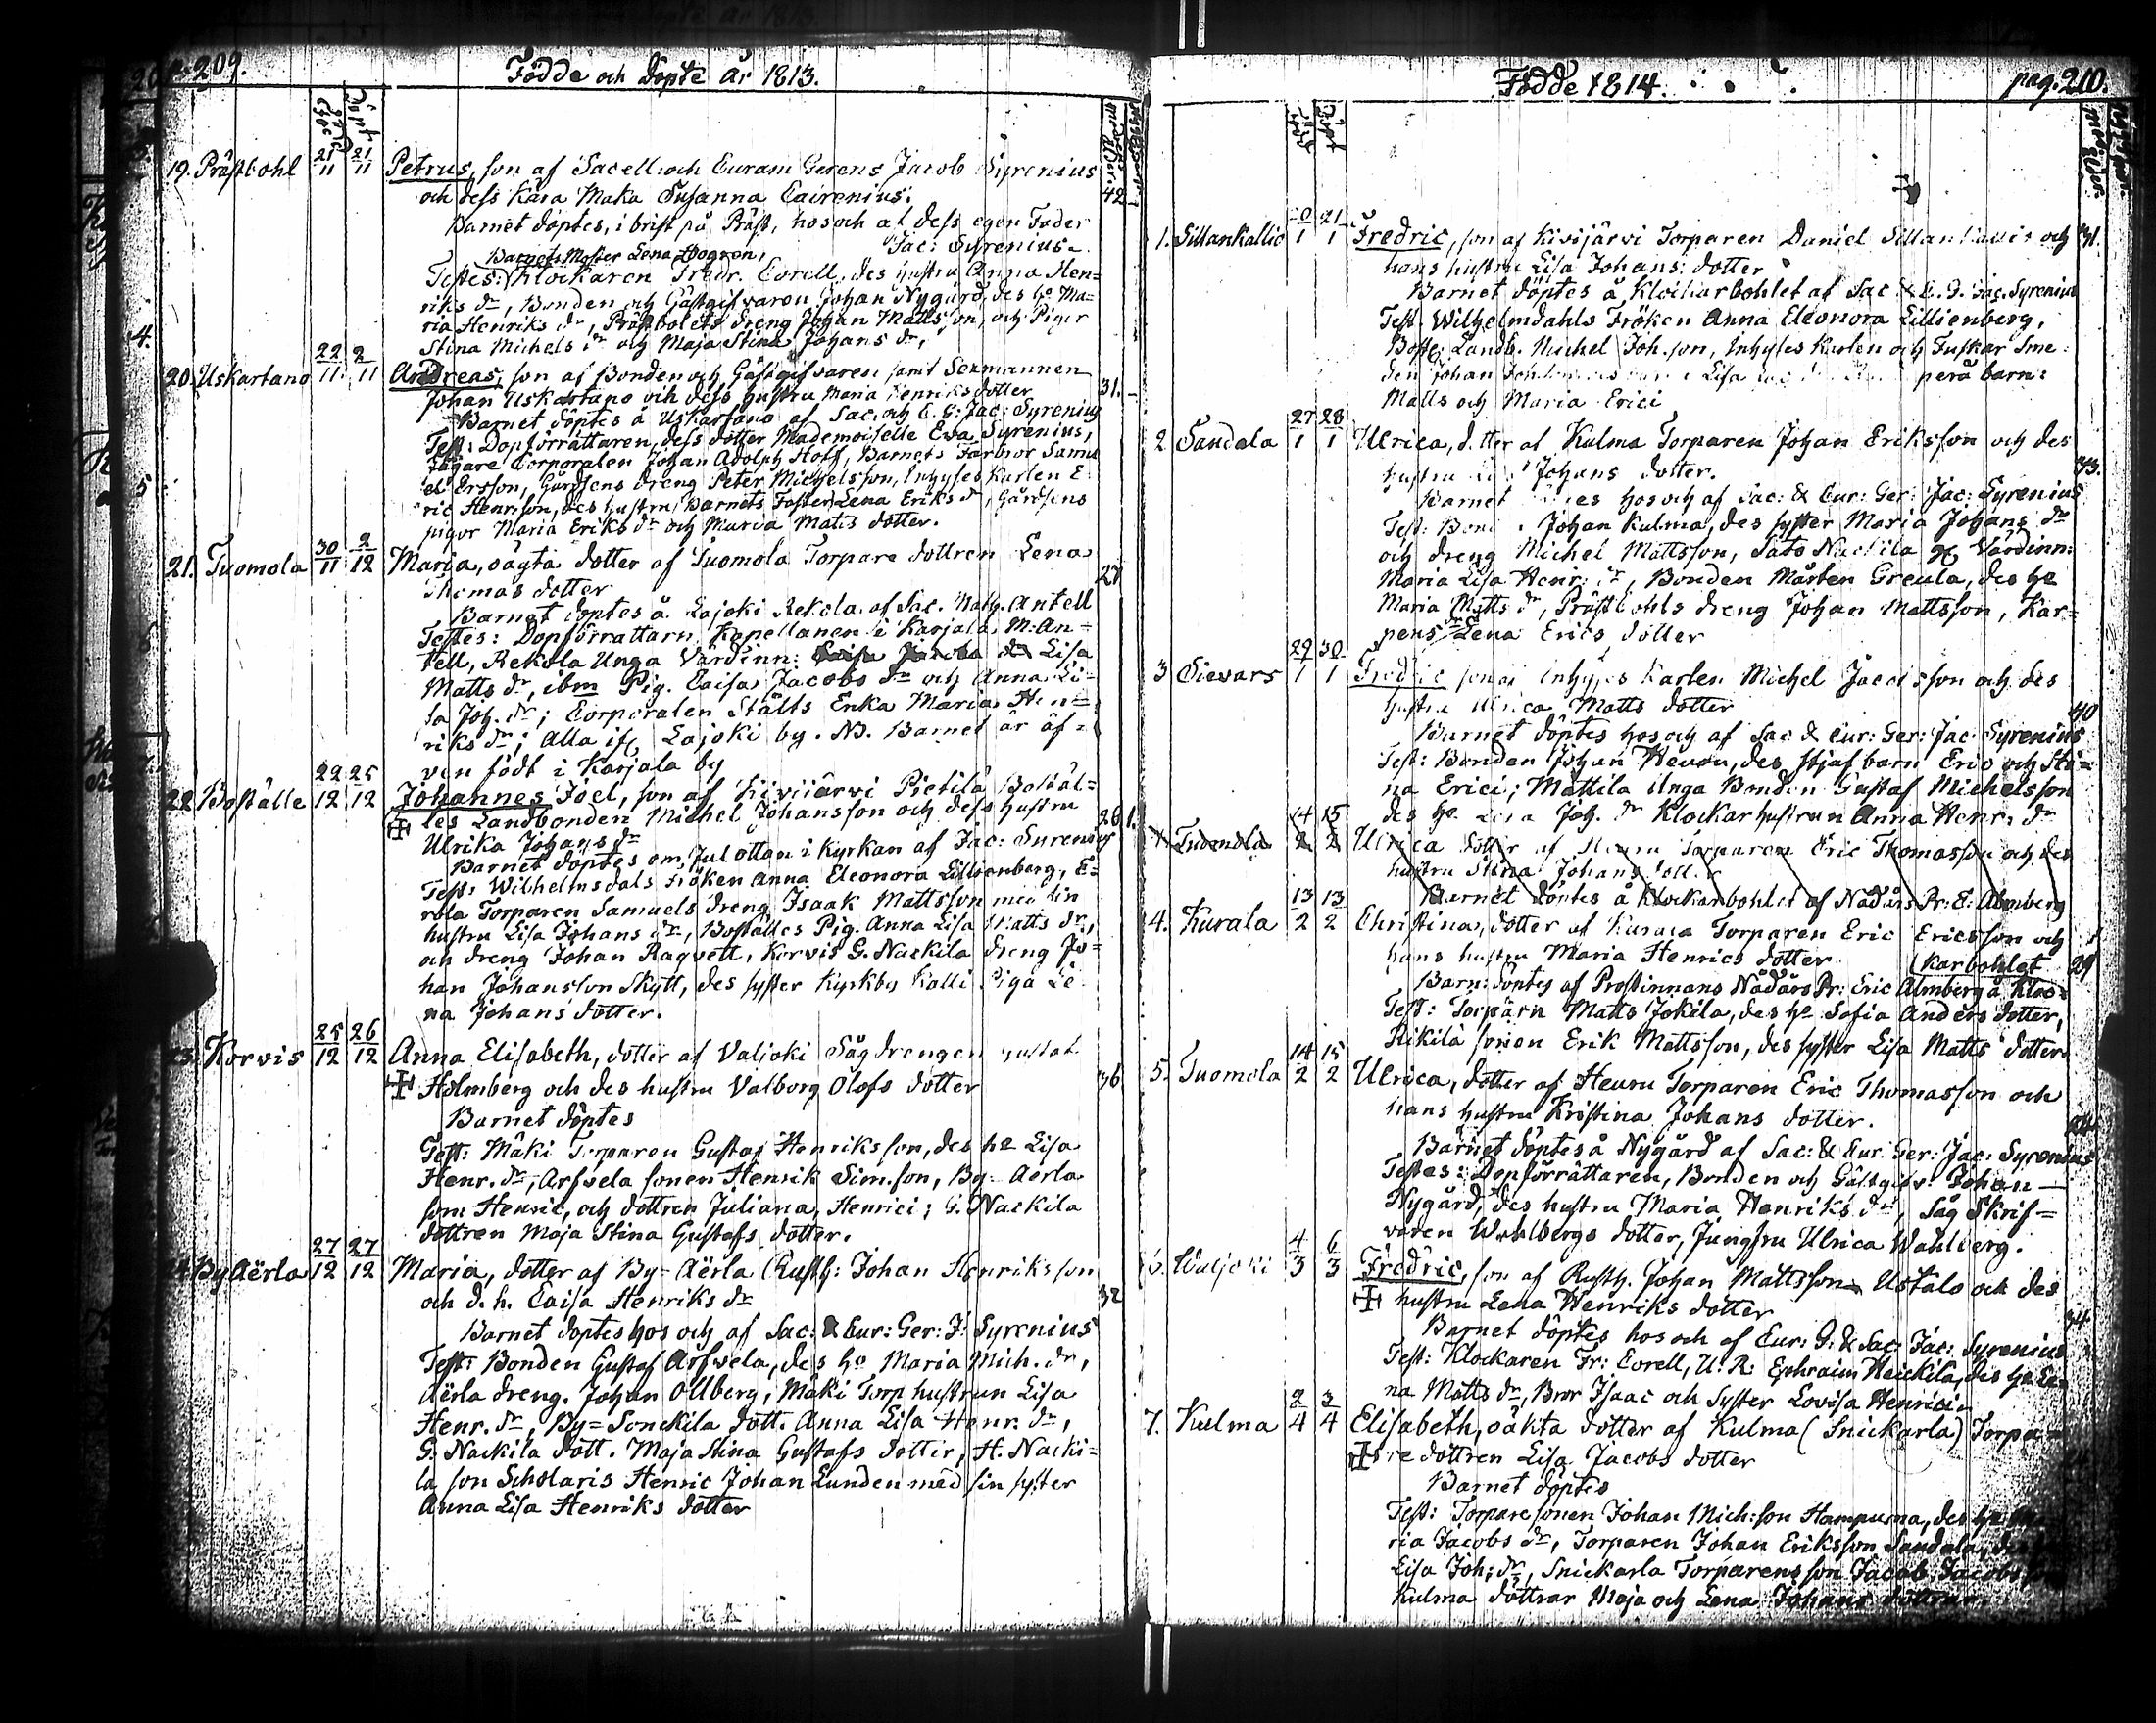 p. 209.
Födde och döpte år 1813.
19. Präftbohl 21/11 21/11 Petrus, son af Sacell: och Curam Gerens Jacob Syrenius
och dess kära Maka Susanna Cairenius. 42
Barnet döptes, i brist på Präst, hos och af dess egen Fader
Jac: Syrenius.
Barnets Moster Lena
Testes: Klockaren Fredr. Corell, des hustru Anna Hen=
riks dr, Bonden och Gästgifvaren Johan Nygård, des ho Ma=
ria Henriks dr, Prästbolets dreng Johan Mattsson, och Pigor
Stina Michels dr och Maja Stina Johans dr,
20. Uskartano 22/11 2/11 Andreas, son af Bonden och Gästgifvaren samt Sexmannen
Johan Uskartano och dess hustru Maria Henriks dotter 31.
Barnet döptes å Uskartano af Sac. och C. G: Jac: Syrenius
Test: Dopförrättaren, dess dotter Mademoiselle Eva Syrenius,
Jägare Corporalen Johan Adolph Hoff, Barnets Farbror Samu
el Ersson, Gårdsens dreng Peter Michelsson, Inhyses Karlen E
ric Henrsson, des hustru, Barnets Faster Lena Eriks dr, Gårdsens
pigor Maria Eriks dr och Maria Matts dotter.
21. Tuomola 30/11 2/12 Maria, oägta dotter af Tuomola Torpare dottren Lena
Thomas dotter 27
Barnet döptes å Lajoki Rekola af Sac. Math. Antell
Testes: Dopförrattarn Kapellanen i Karjala M: An=
tell, Rekola Unga Värdinn: Caisa Jacobs dr Lisa
Matts dr, ibm Pig. Caisa Jacobs dr och Anna Li=
sa Joh. dr; Corporalen Stålts Enka Maria Hen=
riks dr; Alla if Lajoki by. NB. Barnet är äf=
ven födt i Karjala by
22. Boställe 22/12 25/12 Johannes Joel, son af Kiviiärvi Pietilä Boställ=
les Landbonden Michel Johansson och dess hustru 26
Ulrika Johans dr
Barnet döptes om Julottan i kyrkan af Jac: Syrenius
Test: Wilhelmsdals Fröken Anna Eleonora Lillienberg, E=
rola Torparen Samuels dreng Isaak Mattsson med sin
hustru Lisa Johans dr, Boställes Pig. Anna Lisa Matts dr,
och dreng Johan Ragvett, Korvis G. Nackila dreng Jo=
han Johansson Skytt, des syster Kyrkby Kalli Piga Le
na Johans dotter.
23. Korvis 25/12 26/12 Anna Elisabeth, dotter af Valjoki Såg drengen Gustaf
Holmberg och des hustru Valborg Olofs dotter 36
Barnet döptes
Test: Mäki Torparen Gustaf Henriksson, des ho Lisa
Henr. dr, Arfvela sonen Henrik Sim.son, By-Aerla
son Henric, och dottren Juliana, Henrici; G. Nackila
dottren Maja Stina Gustafs dotter.
24. By Aërla 27/12 27/12 Maria, dotter af By-Aërla Rusth: Johan Henriksson
och d. h. Caisa Henriks dr 32
Barnet döptes hos och af Sac: & Cur: Ger: J: Syrenius
Test: Bonden Gustaf Arfvela, des ho Maria Mich. dr,
Aërla dreng. Johan Ollberg, Mäki Torp hustrun Lisa
Henr. dr, By=Sonckila dott. Anna Lisa Henr. dr,
G. Nackila Dott. Maja Stina Gustafs dotter, H. Nacki=
la son Scholaris Henric Johan Lunden med sin syster
Anna Lisa Henriks dotter
Födde 1814.
pag. 210.
1. Sillankallio 20/1 21/1 Fredric, son af Kivijärvi Torparen Daniel Sillankallio och 31.
hans hustru Lisa Johans: dotter
Barnet döptes å Klockarbohlet af Sac & C. G. Jac. Syrenius
Test. Wilhelmdahls Fröken Anna Eleonora Lillienberg,
Boste: Landb. Michel Joh.son, Inhyses Karlen och Fuskar Sme=
den Johan Lisa perä barn:
Matts och Maria Erici
2 Sandala 27/1 28/1 Ulrica, dotter af Kulma Torparen Johan Eriksson och des
hustru Johans dotter. 43.
Barnet hos och af Sac: & Cur: Ger: Jac: Syrenius
Test: Johan Kulma, des syster Maria Johans dr
och dreng Michel Mattsson, Sato Nackila Värdinn:
Maria Lisa Henr: dr, Bonden Mårten Greula, des ho
Maria Matts dr, Prästbohls dreng Johan Mattsson, Kar=
pens dr Lena Erics dotter
3 Sievars 29/1 30/1 Fredric son af inhyses Karlen Michel Jacobsson och des
hustru Ulrica Matts dotter 40
Barnet döptes hos och af Sac & Cur: Ger: Jac: Syrenius
Test: Bonden Johan Heuru, des stjufbarn Eric och Sti=
na Erici; Mattila Unga Bonden Gustaf Michelsson
des ho Lisa Joh. dr Klockarhustrun Anna Henr. dr
4 Tuomola 14/2 15/2 Ulrica dotter af Heuru Torparen Eric Thomasson och des
hustru Stina Johans dotter
Barnet döptes å Klockarbohlet af Nådårs Pr: E: Almberg
4. Kurala 13/2 13/2 Christina, dotter af Kurala Torparen Eric Ericsson och
hans hustru Maria Henrics dotter (karbohlet 29
Barn: döptes af Prostinnans Nådårs Pr: Eric Almberg å Kloc=
Test: Torparn Matts Jokila, des ho Sofia Anders dotter,
Rikilä sonen Erik Mattsson, des syster Lisa Matts dotter
5. Tuomola 14/2 15/2 Ulrica, dotter af Heuru Torparen Eric Thomasson och
hans hustru Kristina Johans dotter. 24
Barnet döptes å Nygård af Sac: & Cur. Ger: Jac: Syrenius
Testes: Dopförrättaren, Bonden och Gästgifv. Johan
Nygård, des hustru Maria Henriks dr, Såg Skrif=
varen Wahlbergs dotter, Jungfru Ulrica Wahlberg.
6. Waljoki 4/3 6/3 Fredric, son af Rusth. Johan Mattsson Ustalo och des
hustru Lena Henriks dotter 34
Barnet döptes hos och af Cur: G: & Sac: Jac: Syrenius
Test: Klockaren Fr: Corell, U: R: Ephraim Heickilä, des ho Le
na Matts dr, Bror Isaac och Syster Lovisa Henrici
7. Kulma 2/4 3/4 Elisabeth, oäkta dotter af Kulma (Snickarla) Torpa
re dottren Lisa Jacobs dotter
Barnet döptes
Test: Torpare sonen Johan Mich:son Hampuma, des ho
ria Jacobs dr, Torparen Johan Eriksson Sandala, des
Lisa Joh: dr, Snickarla Torparens son Jacob Jacobsson
Kulma döttrar Maja och Lena Johans döttrar.